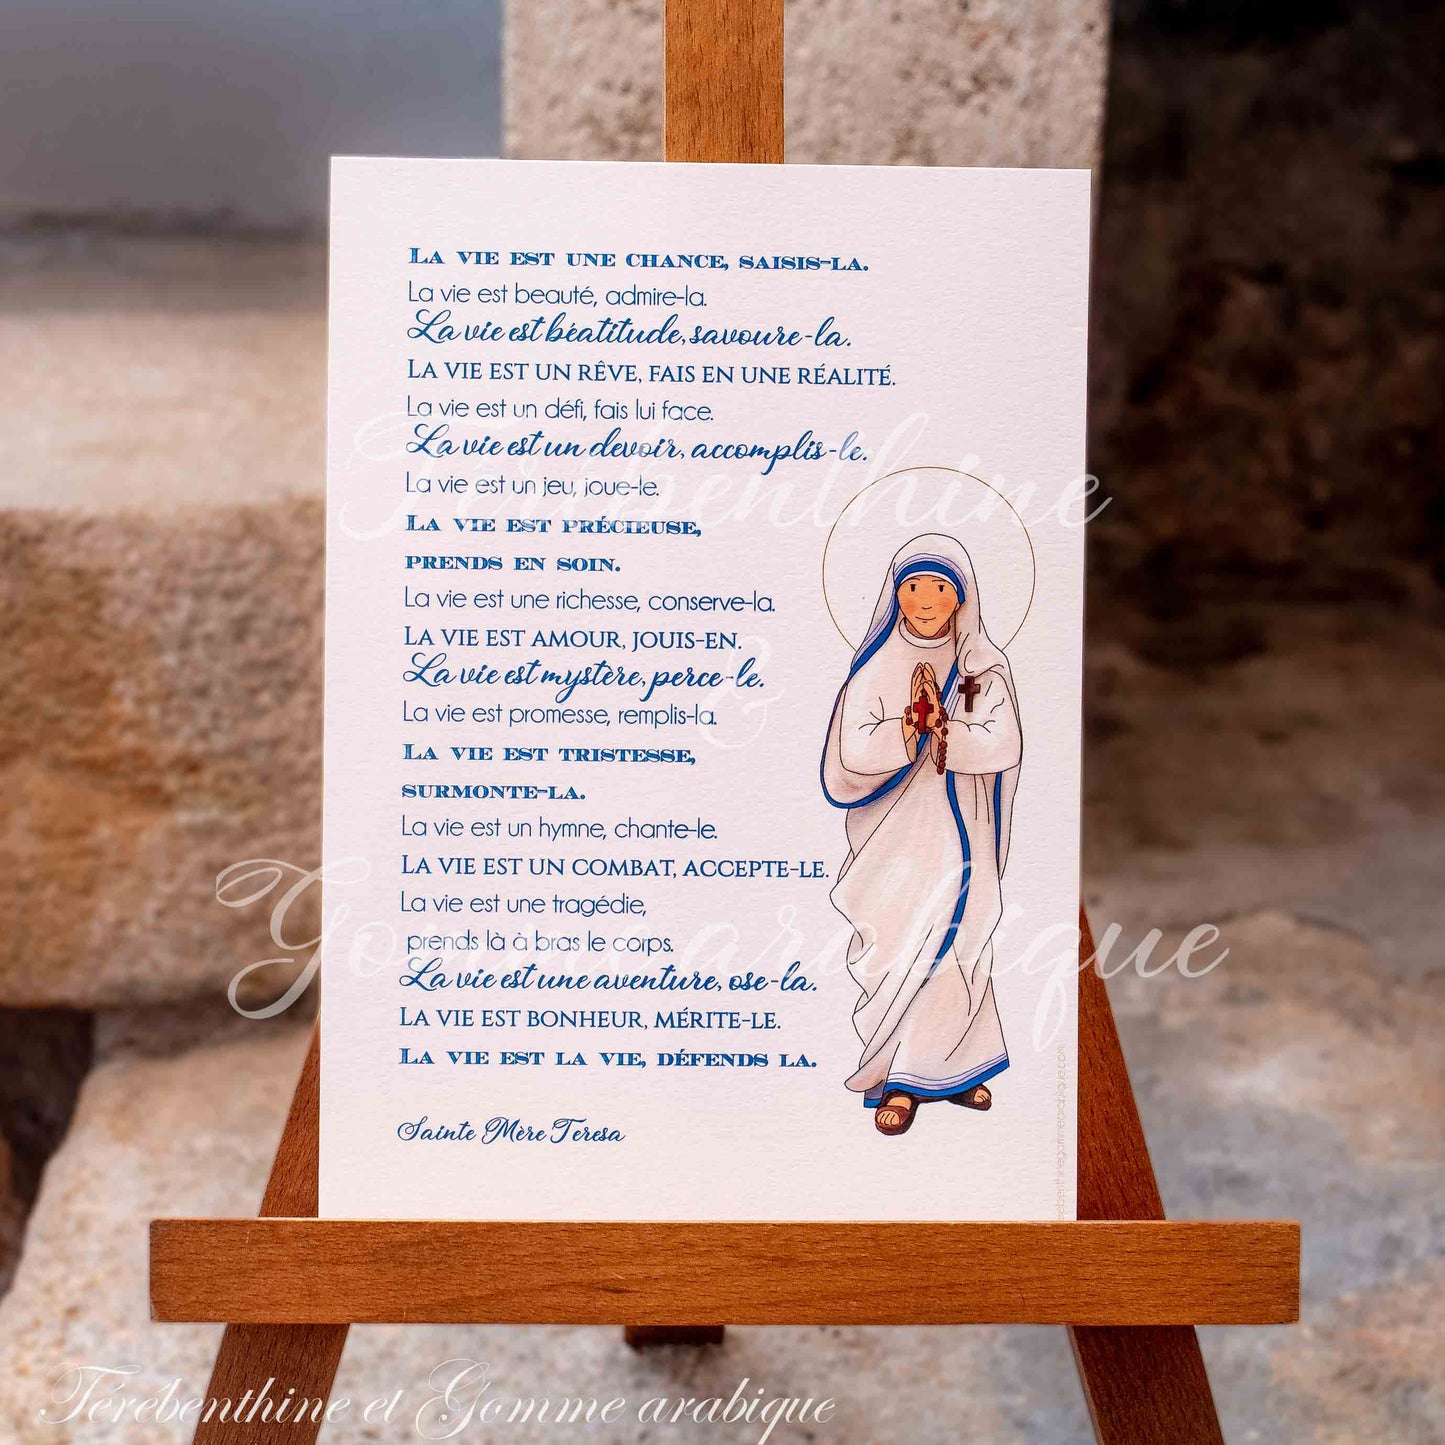 La vie est une chance, saisis-la.
La vie est beauté, admire-la.
La vie est béatitude, savoure-la.
La vie est un rêve, fais en une réalité.
La vie est un défi, fais lui face.
La vie est un devoir, accomplis-le.
La vie est un jeu, joue-le.
La vie est précieuse,
prends en soin.
La vie est une richesse, conserve-la.
La vie est amour, jouis-en.
La vie est mystère, perce-le.
La vie est promesse, remplis-la.
La vie est tristesse,
surmonte-la.
La vie est un hymne, chante-le.
La vie est un combat, accepte-le.
La vie est une tragédie,
prends là à bras le corps.
La vie est une aventure, ose-la.
La vie est bonheur, mérite-le.
La vie est la vie, défends la.
Sainte Mère Teresa
Térébenthine
&
Gomme arabique
Térébenthine et Gomme arabique